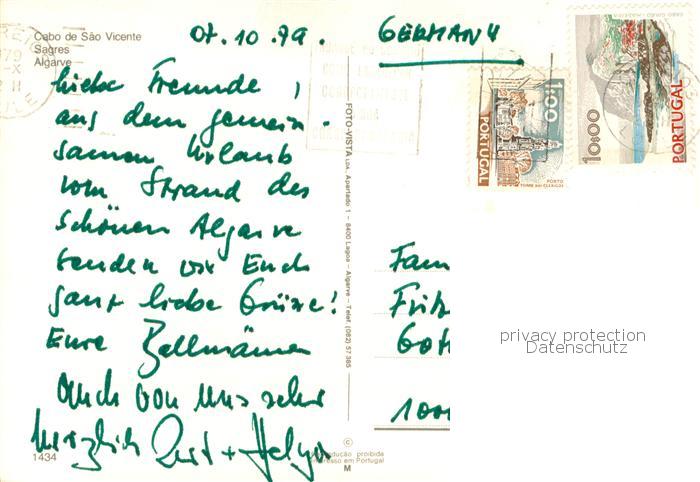 Cabo de São Vicente
Sagres
Algarve
07.10.79.
GERMANY
liebe Freunde,
aus dem gemein-
samen Urlaub
vom Strand des
schönen Algarve
senden wir Euch
ganz liebe Grüße!
Eure Bellmänner
auch von uns sehr
herzlich Curt + Helga
1434
FOTO-VISTA LDA. Apartado 1 - 8400 Lagoa - Algarve - Telef. (082) 57 385
©
Reprodução proibida
Impresso em Portugal
M
1$00
PORTUGAL
PORTO
TORRE DOS CLÉRIGOS
10$00
PORTUGAL
CABO GIRÃO - MADEIRA
Fam
Fritz
Got
100
privacy protection
Datenschutz